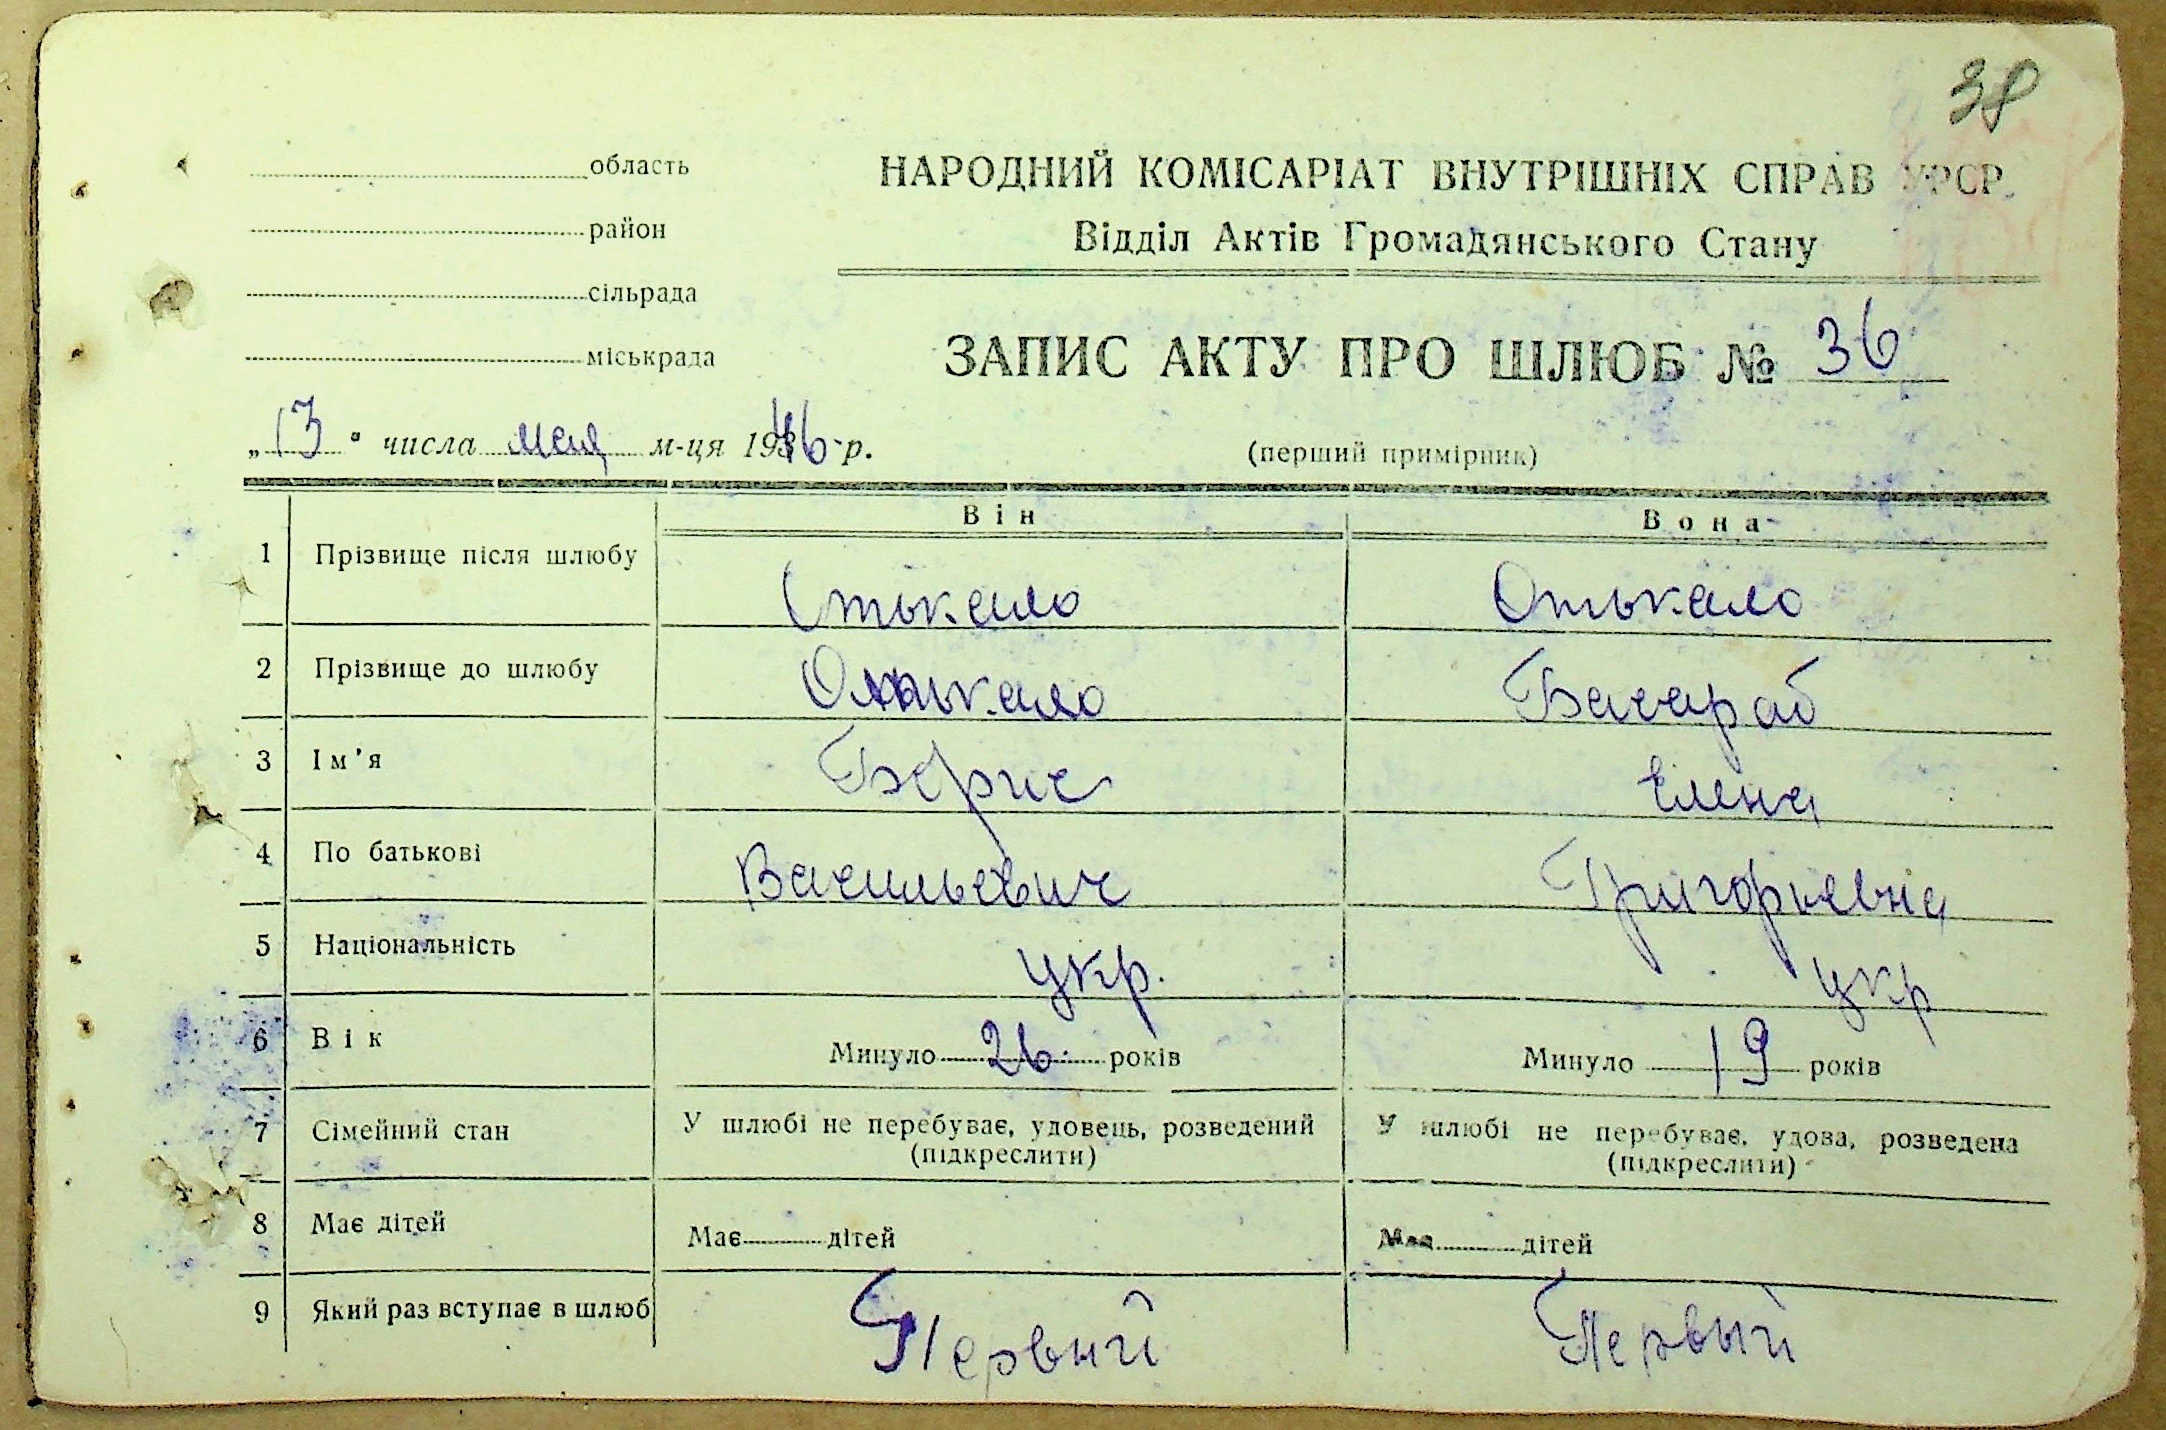 38
область
район
сільрада
міськрада
НАРОДНИЙ КОМІСАРІАТ ВНУТРІШНІХ СПРАВ УРСР
Відділ Актів Громадянського Стану
ЗАПИС АКТУ ПРО ШЛЮБ № 36
„13" числа мая м-ця 1946 р.
(перший примірник)
Він Вона
1 Прізвище після шлюбу Отькало Отькало
2 Прізвище до шлюбу Отькало Басараб
3 Ім'я Борис Елена
4 По батькові Васильевич Григорьевна
5 Національність укр. укр
6 Вік Минуло 26 років Минуло 19 років
7 Сімейний стан У шлюбі не перебуває, удовець, розведений У шлюбі не перебуває, удова, розведена
(підкреслити) (підкреслити)
8 Має дітей Має дітей Має дітей
9 Який раз вступає в шлюб Первый Первый